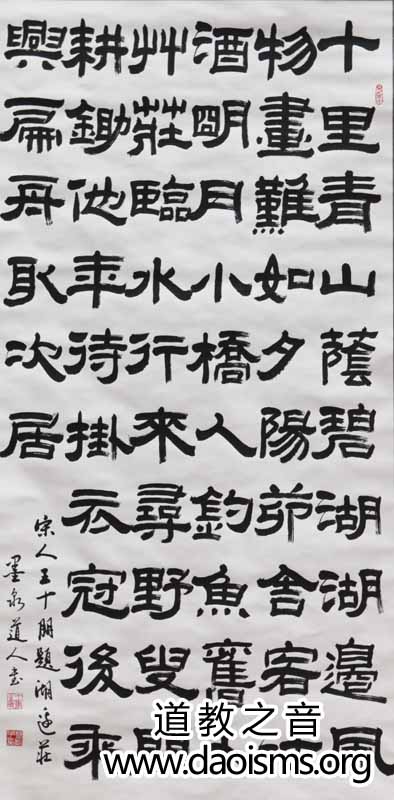 十里青山蔭碧湖湖邊風
物畫難如夕陽茆舍客
酒明月小橋人釣魚舊
艸莊臨水行來尋野叟問
耕鋤他年待掛衣冠後乘
興扁舟取次居
宋人王十朋題湖邊莊
墨泉道人書
道教之音
www.daoisms.org